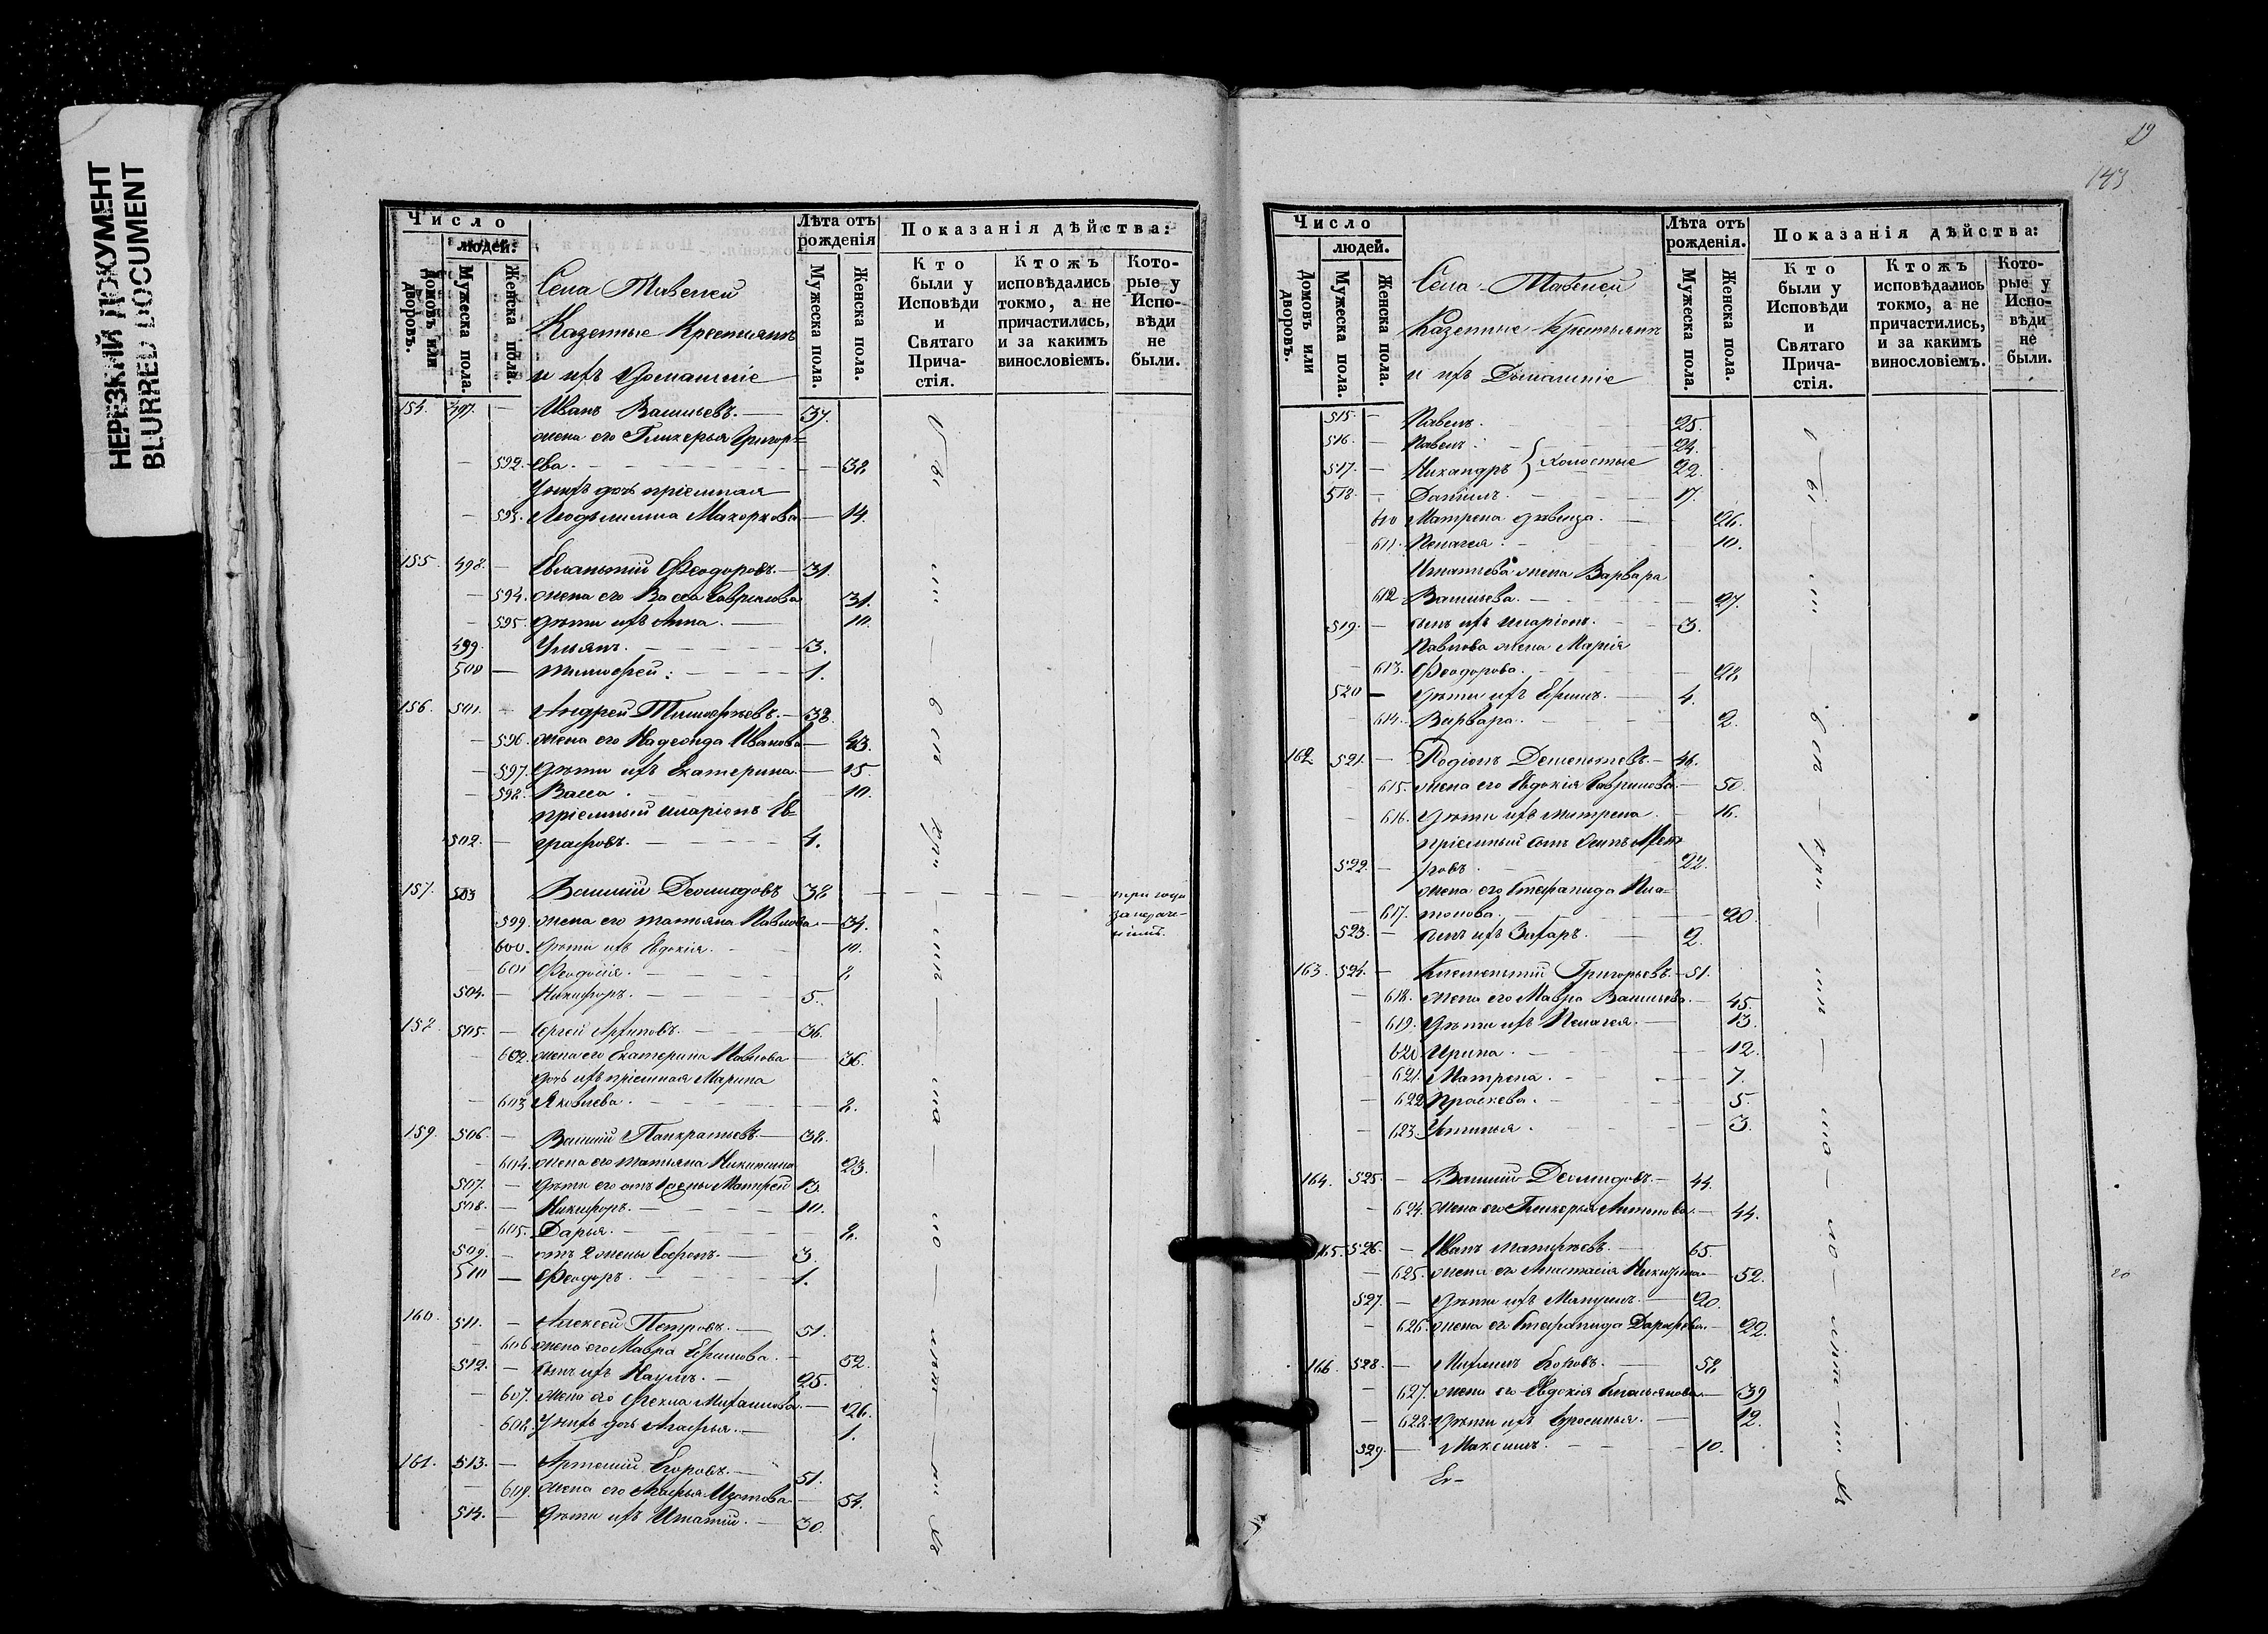 НЕРЕЗКИЙ ДОКУМЕНТ
BLURRED DOCUMENT
Число
людей:
Домовъ или дворовъ.
Мужеска пола.
Женска пола.
Лѣта отъ рожденія
Мужеска пола.
Женска пола.
Показанія дѣйства:
Кто были у Исповѣди и Святаго Прича-стія.
Ктожъ исповѣдались токмо, а не причастились, и за какимъ винословіемъ.
Кото-рые у Испо-вѣди не были.
Села
Казенные Крестьяне
и ихъ домашніе
154. 497. — Иванъ Васильевъ. — 37.
жена его Гликерья Григорь=
592. ева. — 38
У нихъ дочь пріемная
593. Людьмилла — 14.
155. 498. — Евлампій Ѳеодоровъ. — 31.
594. жена его Васса Гаврилова 31.
595. дѣти ихъ Анна. — 10.
499. Ульянъ. — 3.
500 — Тимофей: — 1.
156. 501. Андрей — 38.
596. жена его Надежда Иванова — 43.
597. дѣти ихъ Екатерина. — 15.
598. Васса. — 10.
пріемный Иларіонъ Ев=
502. — графовъ. — 4.
157. 503 Василій Деомидовъ 38 — три года
за нераче-
ніемъ.
599. жена его Татьяна Павлова — 34.
600. дѣти ихъ Евдокія. 10.
601 Ѳеодосія. — 8.
504. — Никифоръ. — 5.
158. 505. — Сергей — 36.
602. жена его Екатерина Павлова — 36.
дочь ихъ пріемная Марина
603 Яковлева. — 8.
159. 506. — Василій Панкратьевъ. — 38.
604. жена его Татьяна Никитина 23.
507. — дѣти его отъ 1 жены 13.
508. — Никифоръ. — 10.
605. Дарья. — 8.
509. — отъ 2 жены Софронъ. — 3.
510 — Ѳеодоръ. — 1.
160. 511. — Алексей Петровъ. — 51.
606 жена его Мавра Ефимова. — 52.
512. — сынъ ихъ Наумъ. — 25.
607. жена его Ѳекла Михаилова. — 26.
608. У нихъ дочь Агафья. — 1.
161. 513. — Артемій Егоровъ. — 51.
609. жена его Агафья Изотова — 54.
514. — дѣти ихъ Игнатій. — 30.
19
143
Число
людей.
Домовъ или дворовъ.
Мужеска пола.
Женска пола.
Лѣта отъ рожденія.
Мужеска пола.
Женска пола.
Показанія дѣйства:
Кто были у Исповѣди и Святаго Прича-стія.
Ктожъ исповѣдались токмо, а не причастились, и за какимъ винословіемъ.
Кото-рые у Испо-вѣди не были.
Села
Казенные Крестьяне
и ихъ Домашніе
515. — Павелъ. 25.
516. — Павелъ. — 24.
517. — Никандръ } холостые 22.
518. — Даніилъ. — 17.
610 Матрена дѣвица. — 26.
611. Пелагея. — 10.
Игнатьева жена Варвара
612 Васильева. — 27.
519. — сынъ ихъ Иларіонъ. 3.
Павлова жена Марія
613. Ѳеодорова. — 28
520 — дѣти ихъ Ефимъ. — 4.
614. Варвара. — 2.
162. 521. — Родіонъ Дементьевъ. — 46.
615. жена его Евдокія Гаврилова. — 50.
616. дѣти ихъ Матрена. 16.
522. — 22.
жена его Степанида Пла=
617. тонова. — 20.
523. — сынъ ихъ Захаръ. — 2.
163. 524. — Климентій Григорьевъ. — 51.
618. жена его Мавра Васильева. — 45.
619. дѣти ихъ Пелагея. — 13.
620 Ирина. — 12.
621. Матрена. — 7.
622 Праскева. — 5.
623. Устинья. — 3.
164. 525. — Василій Деомидовъ. — 44.
624. жена его Гликерья Антонова. — 44.
165. 526. — Иванъ 65.
625. жена его Анастасія — 52.
527. — дѣти ихъ — 20.
626. жена его Степанида — 22.
166 528. — Егоровъ. — 58
627. жена его Евдокія Емельянова. — 39
628. дѣти ихъ Ефросинья. — 12.
529. — Максимъ. — 10.
Ег-
20